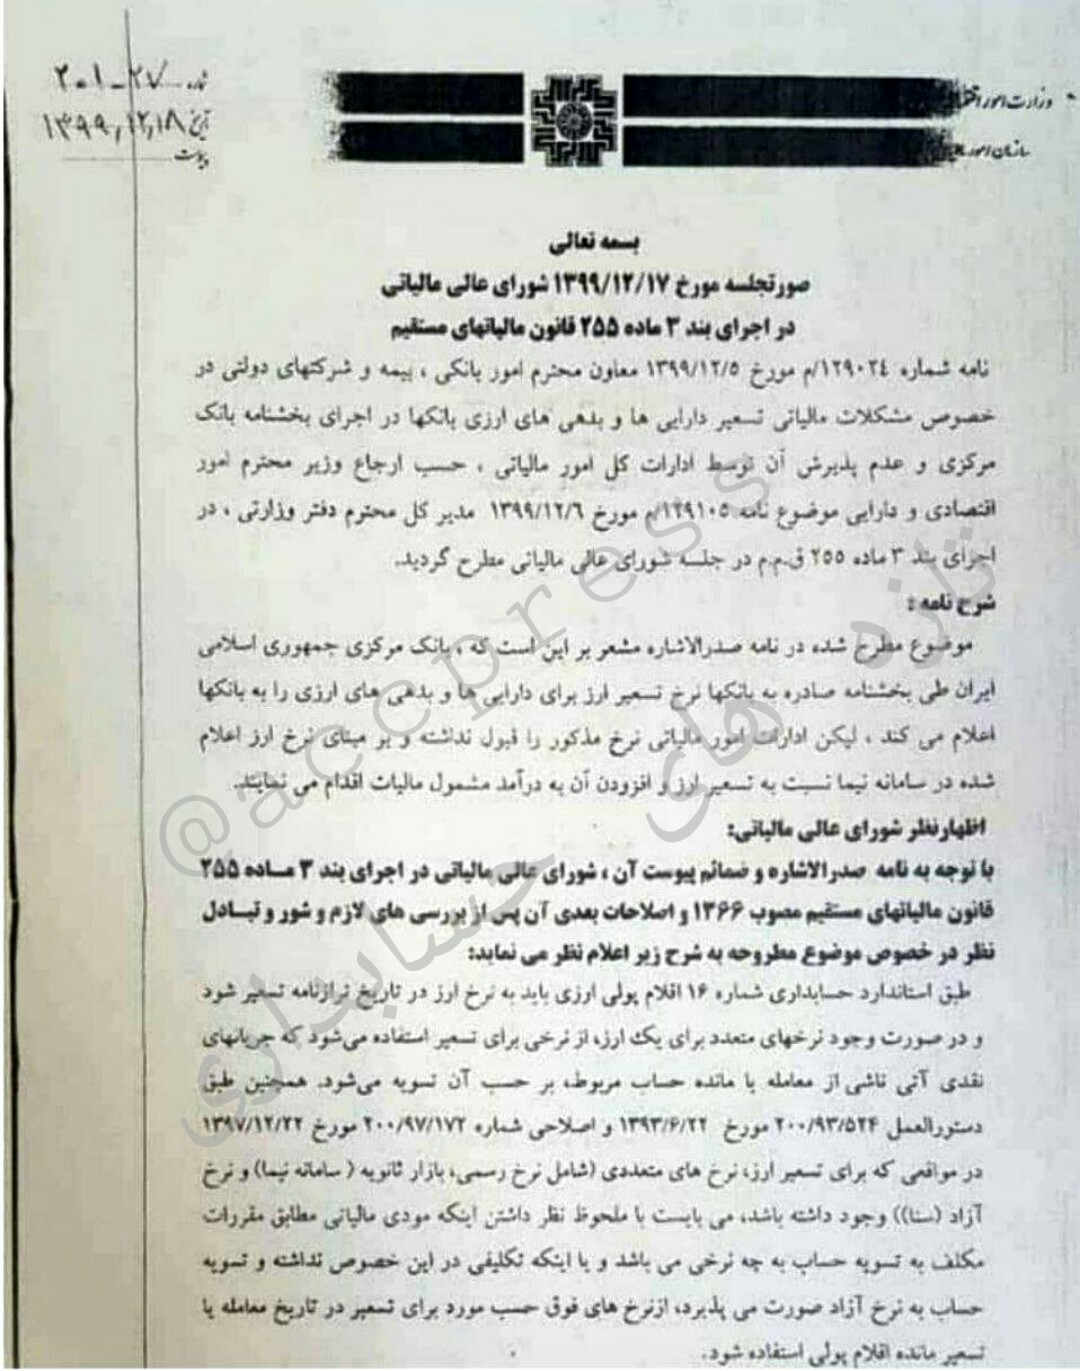 شماره ۲۷-۲۰۱
تاریخ ۱۳۹۹,۱۲,۱۸
پیوست
وزارت امور
سازمان امور
بسمه تعالی
صورتجلسه مورخ ۱۳۹۹/۱۲/۱۷ شورای عالی مالیاتی
در اجرای بند ۳ ماده ۲۵۵ قانون مالیاتهای مستقیم
نامه شماره ۱۲۹۰۲۴/م مورخ ۱۳۹۹/۱۲/۵ معاون محترم امور بانکی ، بیمه و شرکتهای دولتی در
خصوص مشکلات مالیاتی تسعیر دارایی ها و بدهی های ارزی بانکها در اجرای بخشنامه بانک
مرکزی و عدم پذیرش آن توسط ادارات کل امور مالیاتی ، حسب ارجاع وزیر محترم امور
اقتصادی و دارایی موضوع نامه ۱۲۹۱۰۵/م مورخ ۱۳۹۹/۱۲/۶ مدیر کل محترم دفتر وزارتی ، در
اجرای بند ۳ ماده ۲۵۵ ق.م.م در جلسه شورای عالی مالیاتی مطرح گردید.
شرح نامه :
موضوع مطرح شده در نامه صدرالاشاره مشعر بر این است که ، بانک مرکزی جمهوری اسلامی
ایران طی بخشنامه صادره به بانکها نرخ تسعیر ارز برای دارایی ها و بدهی های ارزی را به بانکها
اعلام می کند ، لیکن ادارات امور مالیاتی نرخ مذکور را قبول نداشته و بر مبنای نرخ ارز اعلام
شده در سامانه نیما نسبت به تسعیر ارز و افزودن آن به درآمد مشمول مالیات اقدام می نمایند.
اظهارنظر شورای عالی مالیاتی:
با توجه به نامه صدرالاشاره و ضمائم پیوست آن ، شورای عالی مالیاتی در اجرای بند ۳ ماده ۲۵۵
قانون مالیاتهای مستقیم مصوب ۱۳۶۶ و اصلاحات بعدی آن پس از بررسی های لازم و شور و تبادل
نظر در خصوص موضوع مطروحه به شرح زیر اعلام نظر می نماید:
طبق استاندارد حسابداری شماره ۱۶ اقلام پولی ارزی باید به نرخ ارز در تاریخ ترازنامه تسعیر شود
و در صورت وجود نرخهای متعدد برای یک ارز، از نرخی برای تسعیر استفاده می‌شود که جریانهای
نقدی آتی ناشی از معامله یا مانده حساب مربوط، بر حسب آن تسویه می‌شود. همچنین طبق
دستورالعمل ۲۰۰/۹۳/۵۲۴ مورخ ۱۳۹۳/۶/۲۲ و اصلاحی شماره ۲۰۰/۹۷/۱۷۲ مورخ ۱۳۹۷/۱۲/۲۲
در مواقعی که برای تسعیر ارز، نرخ های متعددی (شامل نرخ رسمی، بازار ثانویه ( سامانه نیما) و نرخ
آزاد (سنا)) وجود داشته باشد، می بایست با ملحوظ نظر داشتن اینکه مودی مالیاتی مطابق مقررات
مکلف به تسویه حساب به چه نرخی می باشد و یا اینکه تکلیفی در این خصوص نداشته و تسویه
حساب به نرخ آزاد صورت می پذیرد، ازنرخ های فوق حسب مورد برای تسعیر در تاریخ معامله یا
تسعیر مانده اقلام پولی استفاده شود.
@accpress
تازه های حسابداری